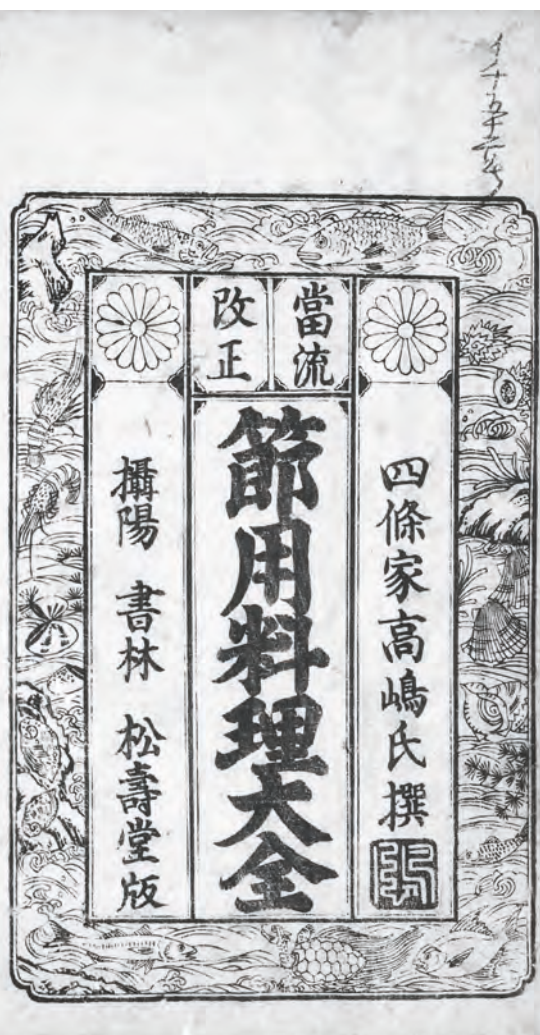 四條家高嶋氏撰
當流
改正
節用料理大全
攝陽 書林 松壽堂版